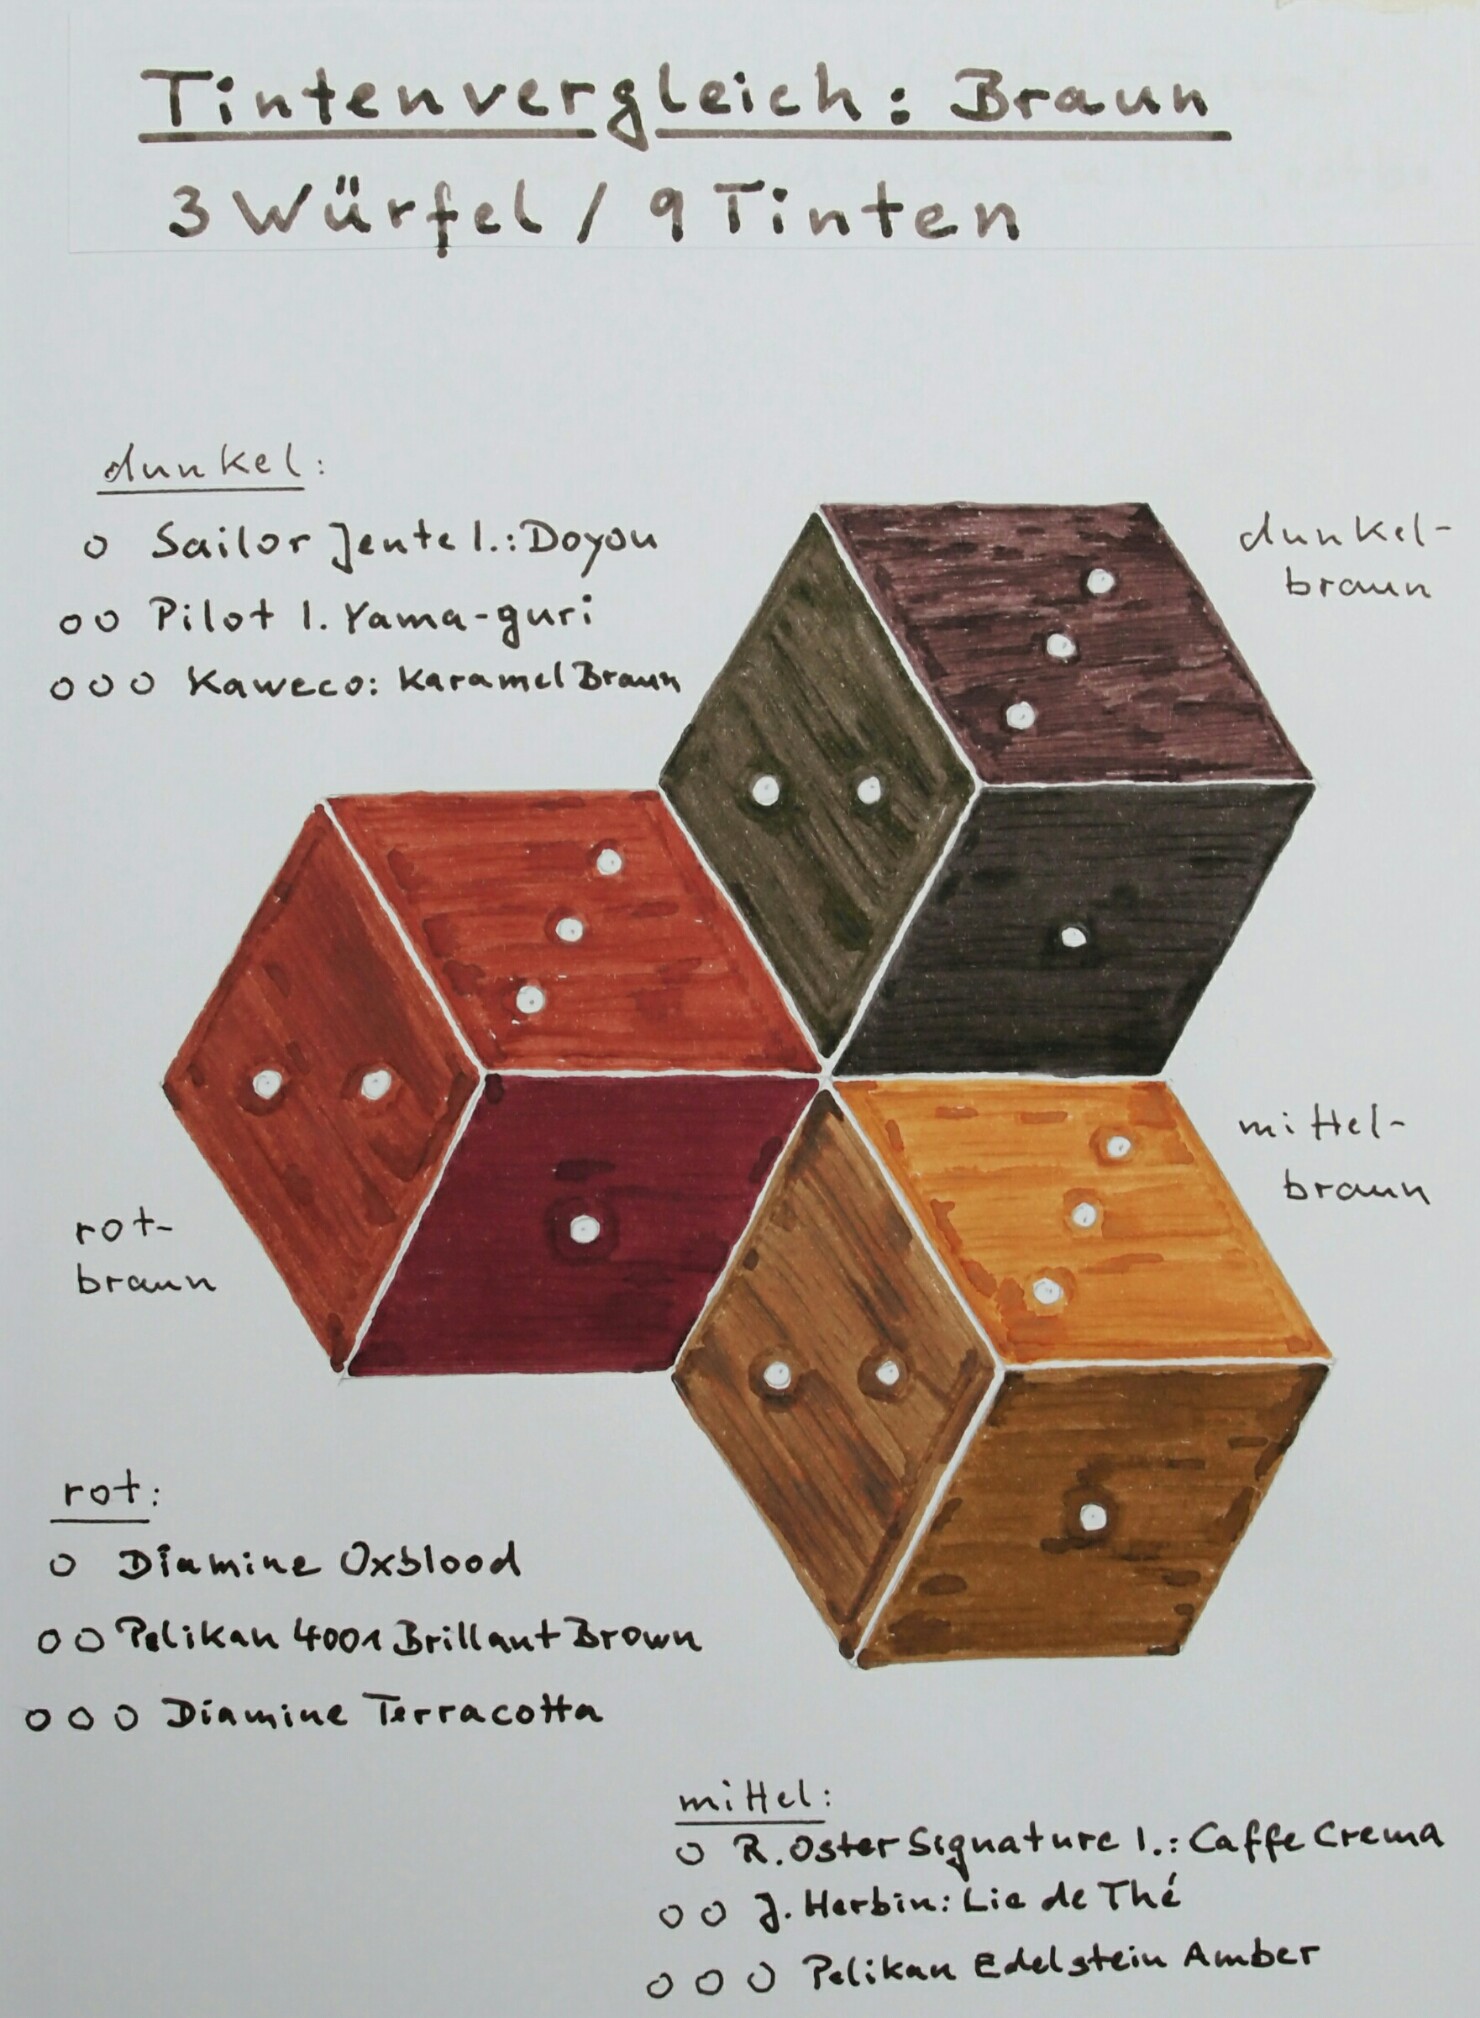 Tintenvergleich: Braun
3 Würfel / 9 Tinten
dunkel:
o Sailor Jentle I.: Doyou
oo Pilot I. Yama-guri
ooo Kaweco: Karamel Braun
dunkel-
braun
mittel-
braun
rot-
braun
rot:
o Diamine Oxblood
oo Pelikan 4001 Brillant Brown
ooo Diamine Terracotta
mittel:
o R. Oster Signature I.: Caffe Crema
oo J. Herbin: Lie de Thé
ooo Pelikan Edelstein Amber